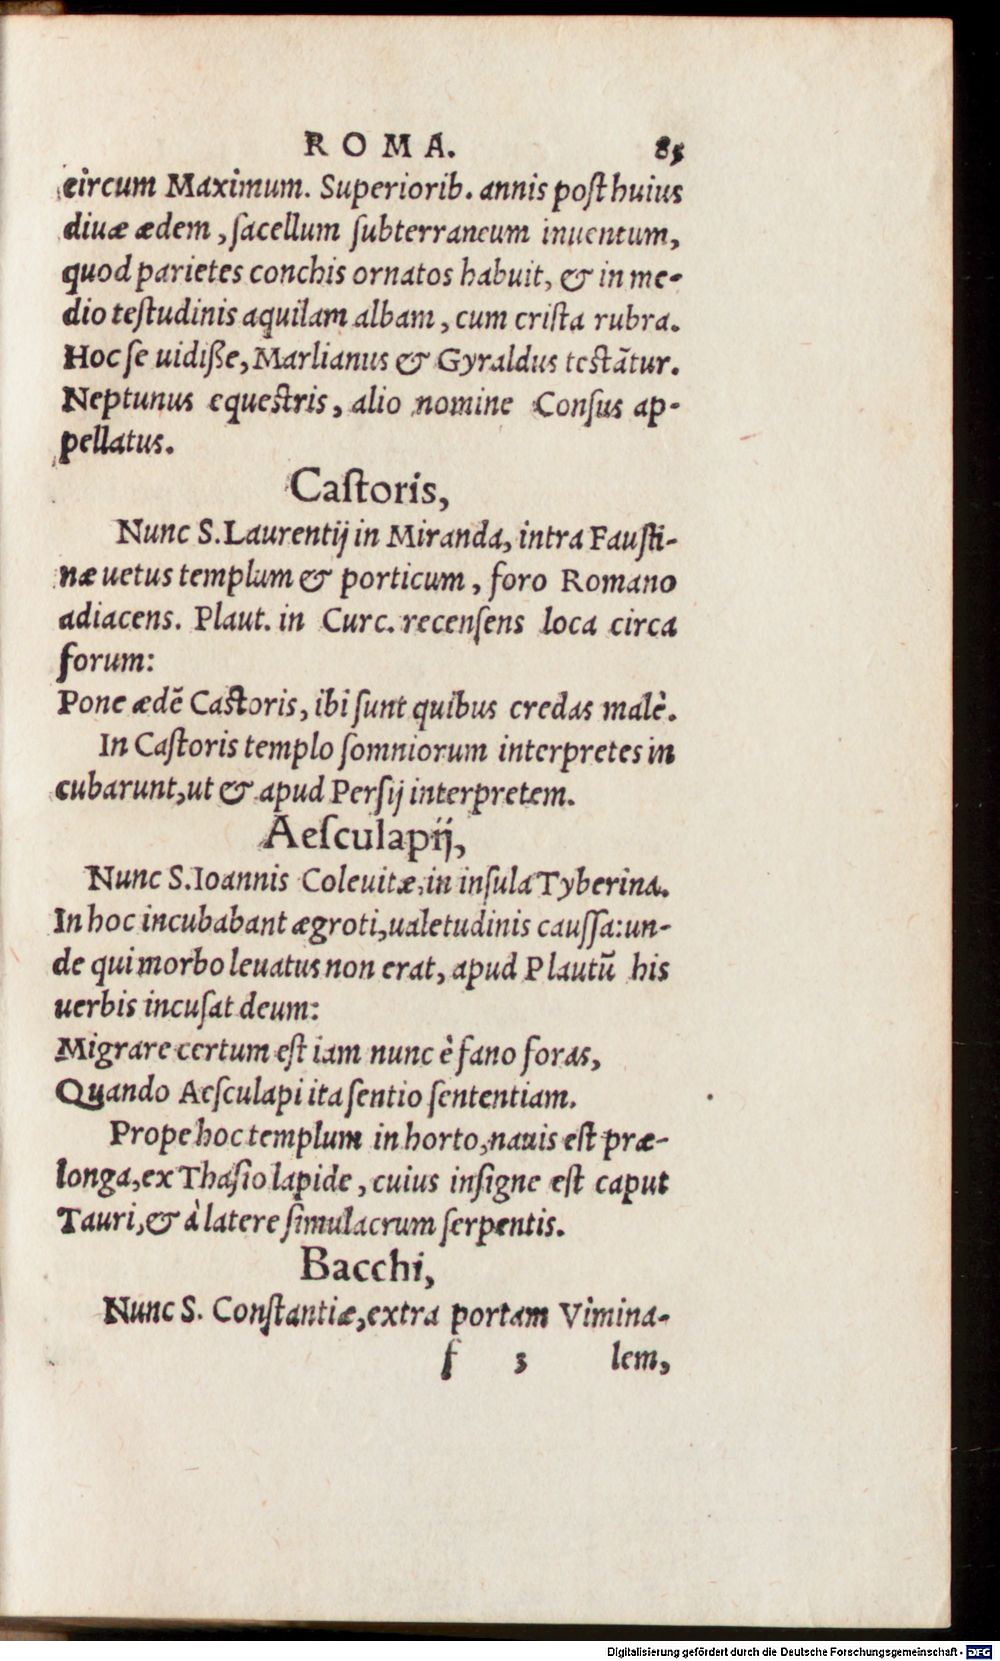 ROMA. 85
circum Maximum. Superiorib. annis post huius
diuæ ædem, ſacellum ſubterraneum inuentum,
quod parietes conchis ornatos habuit, & in me-
dio teſtudinis aquilam albam, cum criſta rubra.
Hoc ſe uidiße, Marlianus & Gyraldus teſtãtur.
Neptunus equeſtris, alio nomine Conſus ap-
pellatus.
Caſtoris,
Nunc S. Laurentij in Miranda, intra Fauſti-
næ uetus templum & porticum, foro Romano
adiacens. Plaut. in Curc. recenſens loca circa
forum:
Pone ædẽ Caſtoris, ibi ſunt quibus credas malè.
In Caſtoris templo ſomniorum interpretes in
cubarunt, ut & apud Perſij interpretem.
Aeſculapij,
Nunc S. Ioannis Coleuitæ, in inſula Tyberina.
In hoc incubabant ægroti, ualetudinis cauſſa: un-
de qui morbo leuatus non erat, apud Plautũ his
uerbis incuſat deum:
Migrare certum eſt iam nunc è fano foras,
Quando Aeſculapi ita ſentio ſententiam.
Prope hoc templum in horto, nauis eſt præ-
longa, ex Thaſio lapide, cuius inſigne eſt caput
Tauri, & à latere ſimulacrum ſerpentis.
Bacchi,
Nunc S. Conſtantiæ, extra portam Vimina-
f 3 lem,
Digitalisierung gefördert durch die Deutsche Forschungsgemeinschaft - DFG